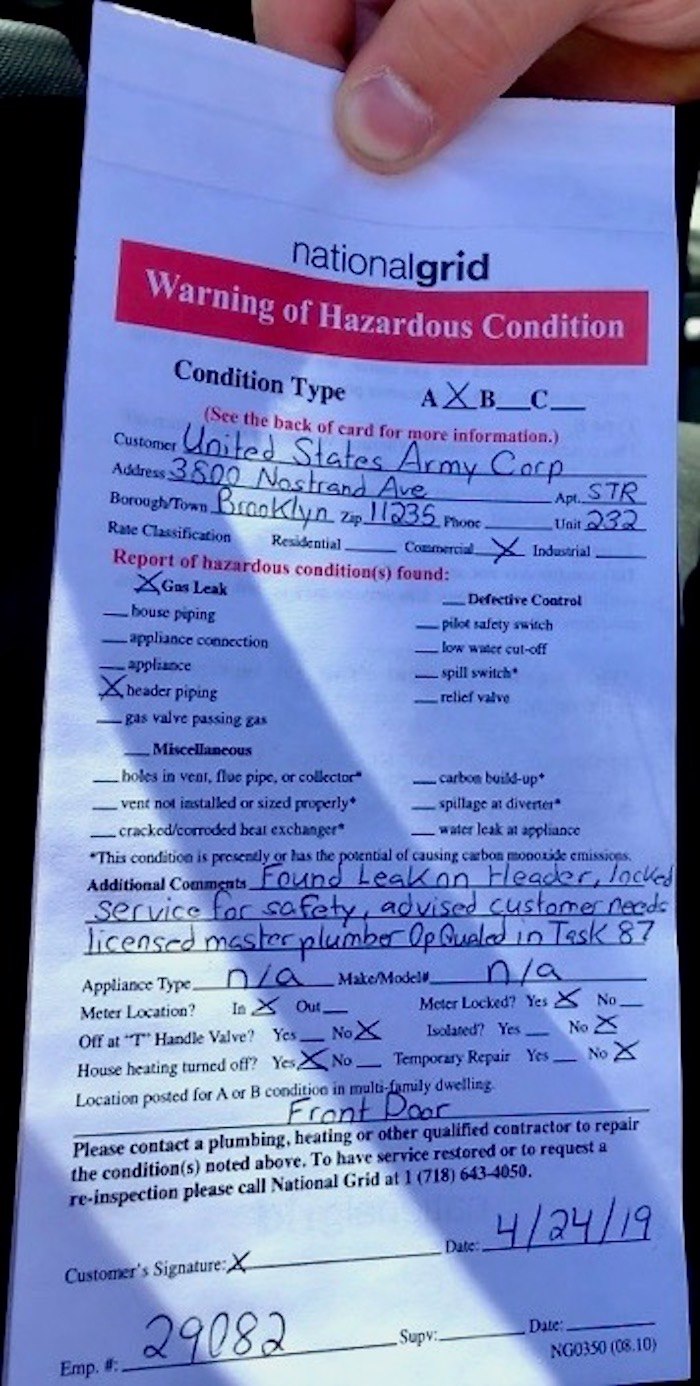 nationalgrid
Warning of Hazardous Condition
Condition Type A X B__ C__
(See the back of card for more information.)
Customer United States Army Corp
Address 3800 Nostrand Ave Apt. STR
Borough/Town Brooklyn Zip 11235 Phone ______ Unit 232
Rate Classification Residential ______ Commercial X Industrial ______
Report of hazardous condition(s) found:
X Gas Leak
__ house piping
__ appliance connection
__ appliance
X header piping
__ gas valve passing gas
__ Defective Control
__ pilot safety switch
__ low water cut-off
__ spill switch*
__ relief valve
__ Miscellaneous
__ holes in vent, flue pipe, or collector*
__ vent not installed or sized properly*
__ cracked/corroded heat exchanger*
__ carbon build-up*
__ spillage at diverter*
__ water leak at appliance
*This condition is presently or has the potential of causing carbon monoxide emissions.
Additional Comments Found Leak on Header, locked
service for safety, advised customer needs
licensed master plumber Op Qualed in Task 87
Appliance Type n/a Make/Model# n/a
Meter Location? In X Out __ Meter Locked? Yes X No __
Off at "T" Handle Valve? Yes __ No X Isolated? Yes __ No X
House heating turned off? Yes X No __ Temporary Repair Yes __ No X
Location posted for A or B condition in multi-family dwelling.
Front Door
Please contact a plumbing, heating or other qualified contractor to repair
the condition(s) noted above. To have service restored or to request a
re-inspection please call National Grid at 1 (718) 643-4050.
Customer's Signature: X ______ Date: 4/24/19
Emp. #: 29082 Supv: ______ Date: ______
NG0350 (08.10)